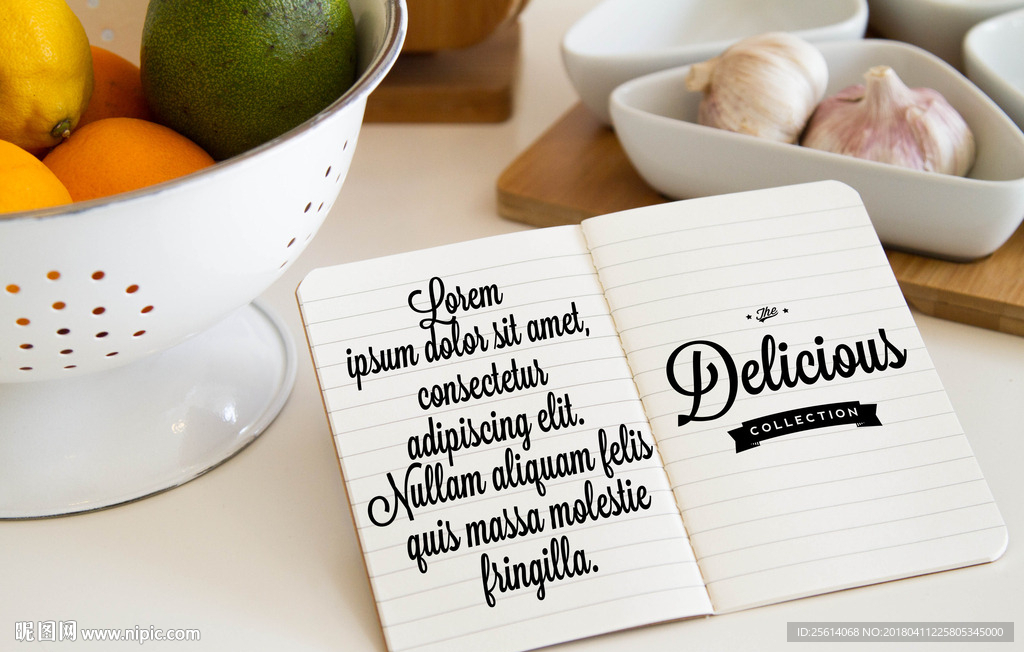 Lorem
dolor sit amet,
ipsum
consectetur
adipiscing elit.
Nullam aliquam felis
quis massa molestie
fringilla.
The
Delicious
COLLECTION
昵图网 www.nipic.com
ID:25614068 NO:20180411225805345000